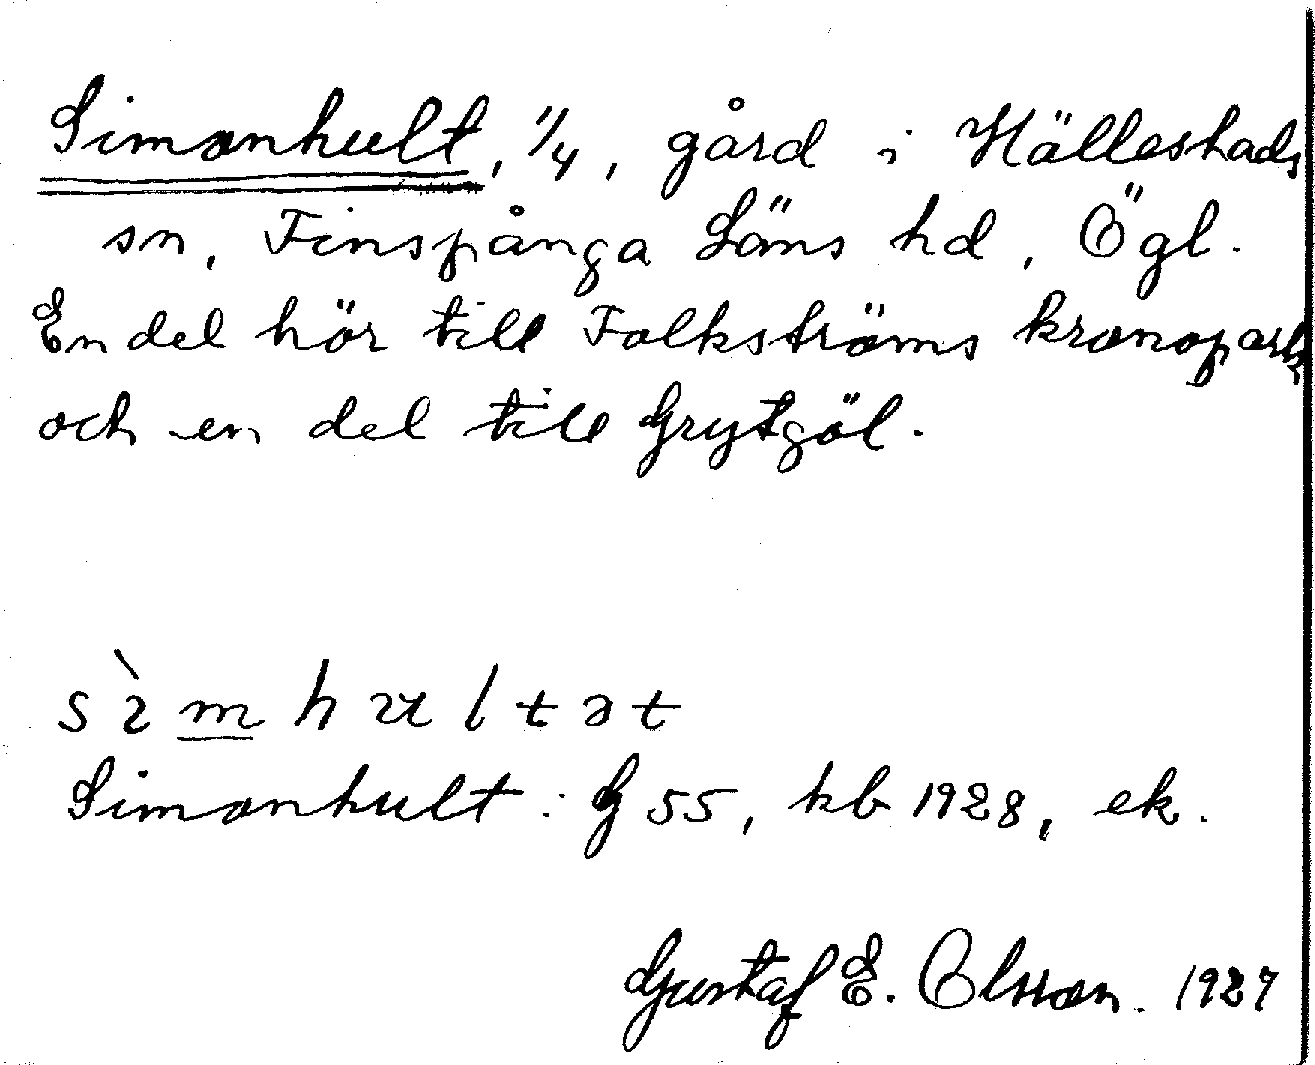 Simonhult, 1/4, gård i Hällestads
sn, Finspånga Läns hd, Ögl.
En del hör till Folkströms kronopark
och en del till Grytgöl.
sìmhultət
Simonhult: G 55, kb 1928, ek.
Gustaf E. Olsson. 1927